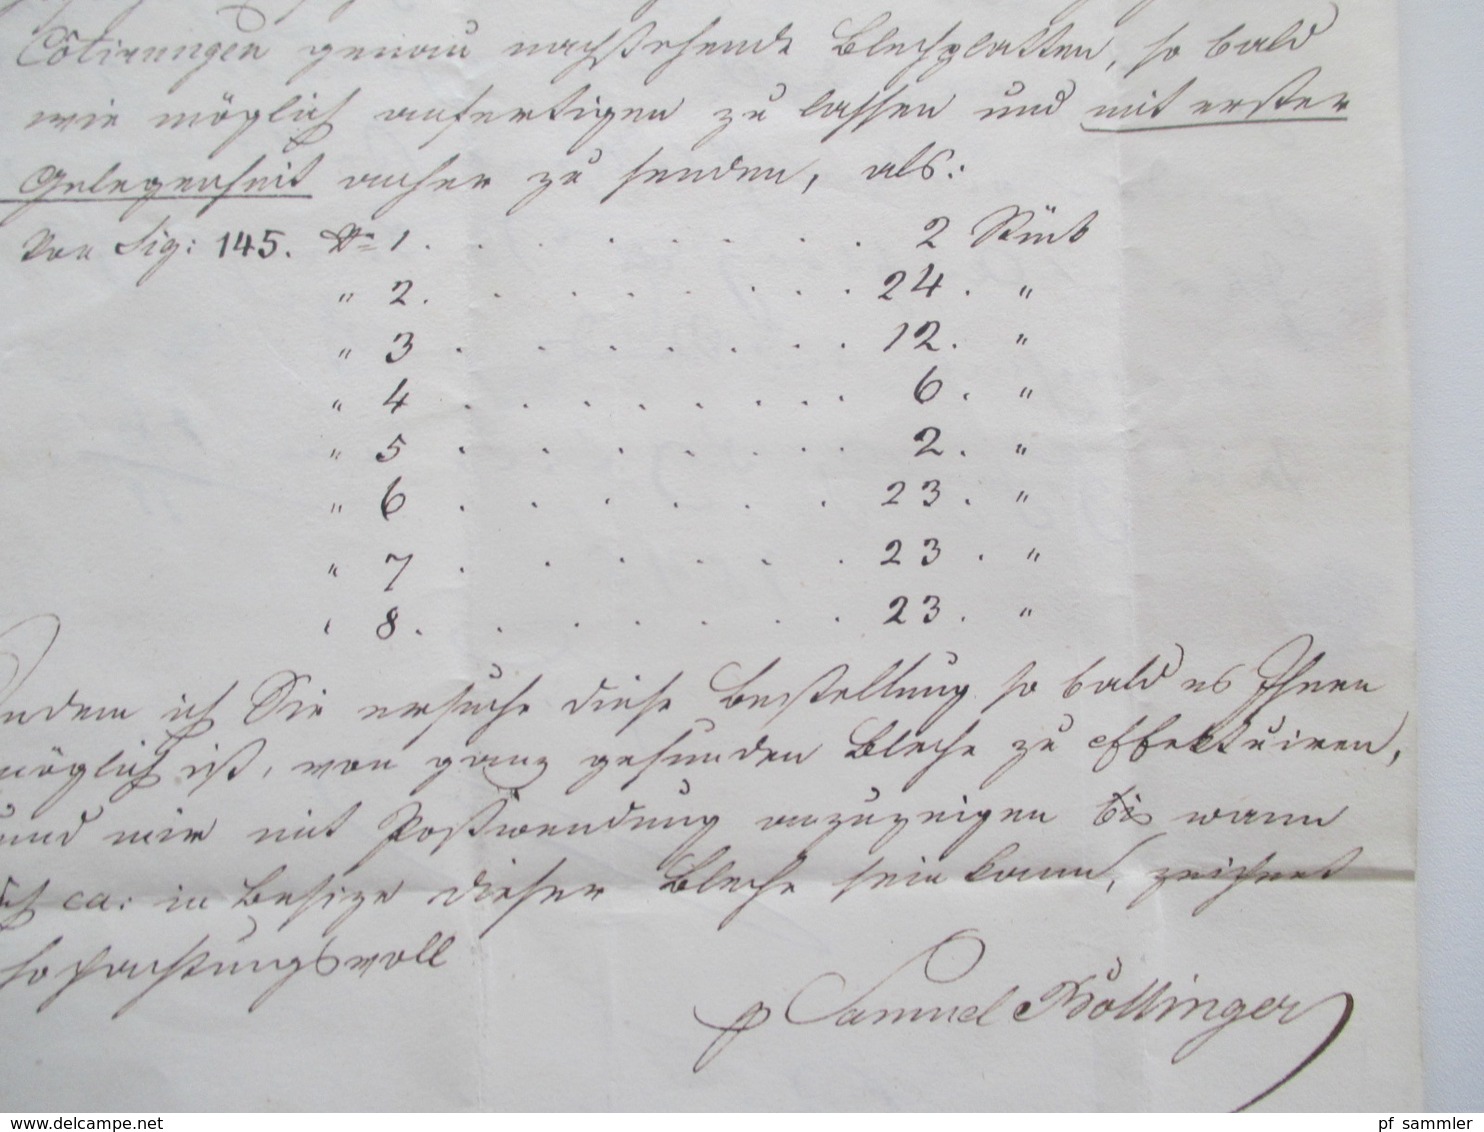 Cötirungen genau nachstehende Blechplatten, so bald
wie möglich anfertigen zu lassen und mit erster
Gelegenheit anher zu senden, als:
Von Fig: 145. No 1 . . . . . . . . 2 Stück
" 2 . . . . . . . . 24 . "
" 3 . . . . . . . . 12 . "
" 4 . . . . . . . . 6 . "
" 5 . . . . . . . . 2 . "
" 6 . . . . . . . 23 . "
" 7 . . . . . . . 23 . "
" 8 . . . . . . . 23 . "
Indem ich Sie ersuche diese Bestellung so bald es Ihnen
möglich ist, von ganz gesunden Bleche zu effektuiren,
und mir mit Postwendung anzuzeigen bis wann
ich ca: in Besize dieser Bleche sein kann, zeichnet
hochachtungsvoll
p Samuel Bollinger
www.delcampe.net
pf_sammler